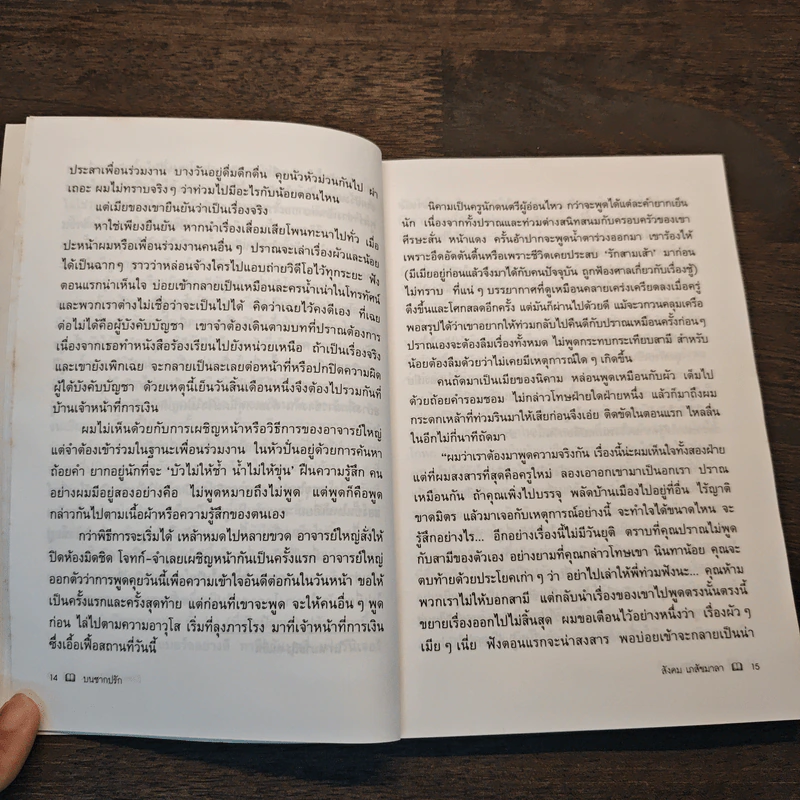 ประสาเพื่อนร่วมงาน บางวันอยู่ดื่มดึกดื่น คุยนัวหัวม่วนกันไป ฝ่า
เถอะ ผมไม่ทราบจริงๆ ว่าท่วมไปมีอะไรกับน้อยตอนไหน
แต่เมียของเขายืนยันว่าเป็นเรื่องจริง
หาใช่เพียงยืนยัน หากนำเรื่องเสื่อมเสียโพนทะนาไปทั่ว เมื่อ
ปะหน้าผมหรือเพื่อนร่วมงานคนอื่นๆ ปราณจะเล่าเรื่องผัวและน้อย
ได้เป็นฉากๆ ราวว่าหล่อนจ้างใครไปแอบถ่ายวิดีโอไว้ทุกระยะ ฟัง
ตอนแรกน่าเห็นใจ บ่อยเข้ากลายเป็นเหมือนละครน้ำเน่าในโทรทัศน์
และพวกเราต่างไม่เชื่อว่าจะเป็นไปได้ คิดว่าเฉยไว้คงดีเอง ที่เฉย
ต่อไม่ได้คือผู้บังคับบัญชา เขาจำต้องเดินตามบทที่ปราณต้องการ
เนื่องจากเธอทำหนังสือร้องเรียนไปยังหน่วยเหนือ ถ้าเป็นเรื่องจริง
และเขายังเพิกเฉย จะกลายเป็นละเลยต่อหน้าที่หรือปกปิดความผิด
ผู้ใต้บังคับบัญชา ด้วยเหตุนี้เย็นวันสิ้นเดือนหนึ่งจึงต้องไปรวมกันที่
บ้านเจ้าหน้าที่การเงิน
ผมไม่เห็นด้วยกับการเผชิญหน้าหรือวิธีการของอาจารย์ใหญ่
แต่จำต้องเข้าร่วมในฐานะเพื่อนร่วมงาน ในหัวปั่นอยู่ด้วยการค้นหา
ถ้อยคำ ยากอยู่นักที่จะ 'บัวไม่ให้ช้ำ น้ำไม่ให้ขุ่น' ฝืนความรู้สึก คน
อย่างผมมีอยู่สองอย่างคือ ไม่พูดหมายถึงไม่พูด แต่พูดก็คือพูด
กล่าวกันไปตามเนื้อผ้าหรือความรู้สึกของตนเอง
กว่าพิธีการจะเริ่มได้ เหล้าหมดไปหลายขวด อาจารย์ใหญ่สั่งให้
ปิดห้องมิดชิด โจทก์-จำเลยเผชิญหน้ากันเป็นครั้งแรก อาจารย์ใหญ่
ออกตัวว่าการพูดคุยวันนี้เพื่อความเข้าใจอันดีต่อกันในวันหน้า ขอให้
เป็นครั้งแรกและครั้งสุดท้าย แต่ก่อนที่เขาจะพูด จะให้คนอื่นๆ พูด
ก่อน ไล่ไปตามความอาวุโส เริ่มที่ลุงภารโรง มาที่เจ้าหน้าที่การเงิน
ซึ่งเอื้อเฟื้อสถานที่วันนี้
14 บนซากปรัก
นิคามเป็นครูนักดนตรีผู้อ่อนไหว กว่าจะพูดได้แต่ละคำยากเย็น
นัก เนื่องจากทั้งปราณและท่วมต่างสนิทสนมกับครอบครัวของเขา
ศีรษะสั่น หน้าแดง ครั้นอ้าปากจะพูดน้ำตาร่วงออกมา เขาร้องไห้
เพราะอึดอัดตันตื้นหรือเพราะชีวิตเคยประสบ 'รักสามเส้า' มาก่อน
(มีเมียอยู่ก่อนแล้วจึงมาได้กับคนปัจจุบัน ถูกฟ้องศาลเกี่ยวกับเรื่องชู้)
ไม่ทราบ ที่แน่ๆ บรรยากาศที่ดูเหมือนคลายเคร่งเครียดลงเมื่อครู่
ตึงขึ้นและโศกสลดอีกครั้ง แต่มันก็ผ่านไปด้วยดี แม้จะวกวนคลุมเครือ
พอสรุปได้ว่าเขาอยากให้ท่วมกลับไปคืนดีกับปราณเหมือนครั้งก่อนๆ
ปราณเองจะต้องลืมเรื่องทั้งหมด ไม่พูดกระทบกระเทียบสามี สำหรับ
น้อยต้องลืมด้วยว่าไม่เคยมีเหตุการณ์ใดๆ เกิดขึ้น
คนถัดมาเป็นเมียของนิคาม หล่อนพูดเหมือนกับผัว เต็มไป
ด้วยถ้อยคำรอมชอม ไม่กล่าวโทษฝ่ายใดฝ่ายหนึ่ง แล้วก็มาถึงผม
กระดกเหล้าที่ท่วมรินมาให้เสียก่อนจึงเอ่ย ติดขัดในตอนแรก ไหลลื่น
ในอีกไม่กี่นาทีถัดมา
"ผมว่าเราต้องมาพูดความจริงกัน เรื่องนี้น่ะผมเห็นใจทั้งสองฝ่าย
แต่ที่ผมสงสารที่สุดคือครูใหม่ ลองเอาอกเขามาเป็นอกเรา ปราณ
เหมือนกัน ถ้าคุณเพิ่งไปบรรจุ พลัดบ้านเมืองไปอยู่ที่อื่น ไร้ญาติ
ขาดมิตร แล้วมาเจอกับเหตุการณ์อย่างนี้ จะทำใจได้ขนาดไหน จะ
รู้สึกอย่างไร... อีกอย่างเรื่องนี้ไม่มีวันยุติ ตราบที่คุณปราณไม่พูด
กับสามีของตัวเอง อย่างยามที่คุณกล่าวโทษเขา นินทาน้อย คุณจะ
ตบท้ายด้วยประโยคเก่าๆ ว่า อย่าไปเล่าให้พี่ท่วมฟังนะ... คุณห้าม
พวกเราไม่ให้บอกสามี แต่กลับนำเรื่องของเขาไปพูดตรงนั้นตรงนี้
ขยายเรื่องออกไปไม่สิ้นสุด ผมขอเตือนไว้อย่างหนึ่งว่า เรื่องผัวๆ
เมียๆ เนี่ย ฟังตอนแรกจะน่าสงสาร พอบ่อยเข้าจะกลายเป็นน่า
สังคม เภสัชมาลา 15